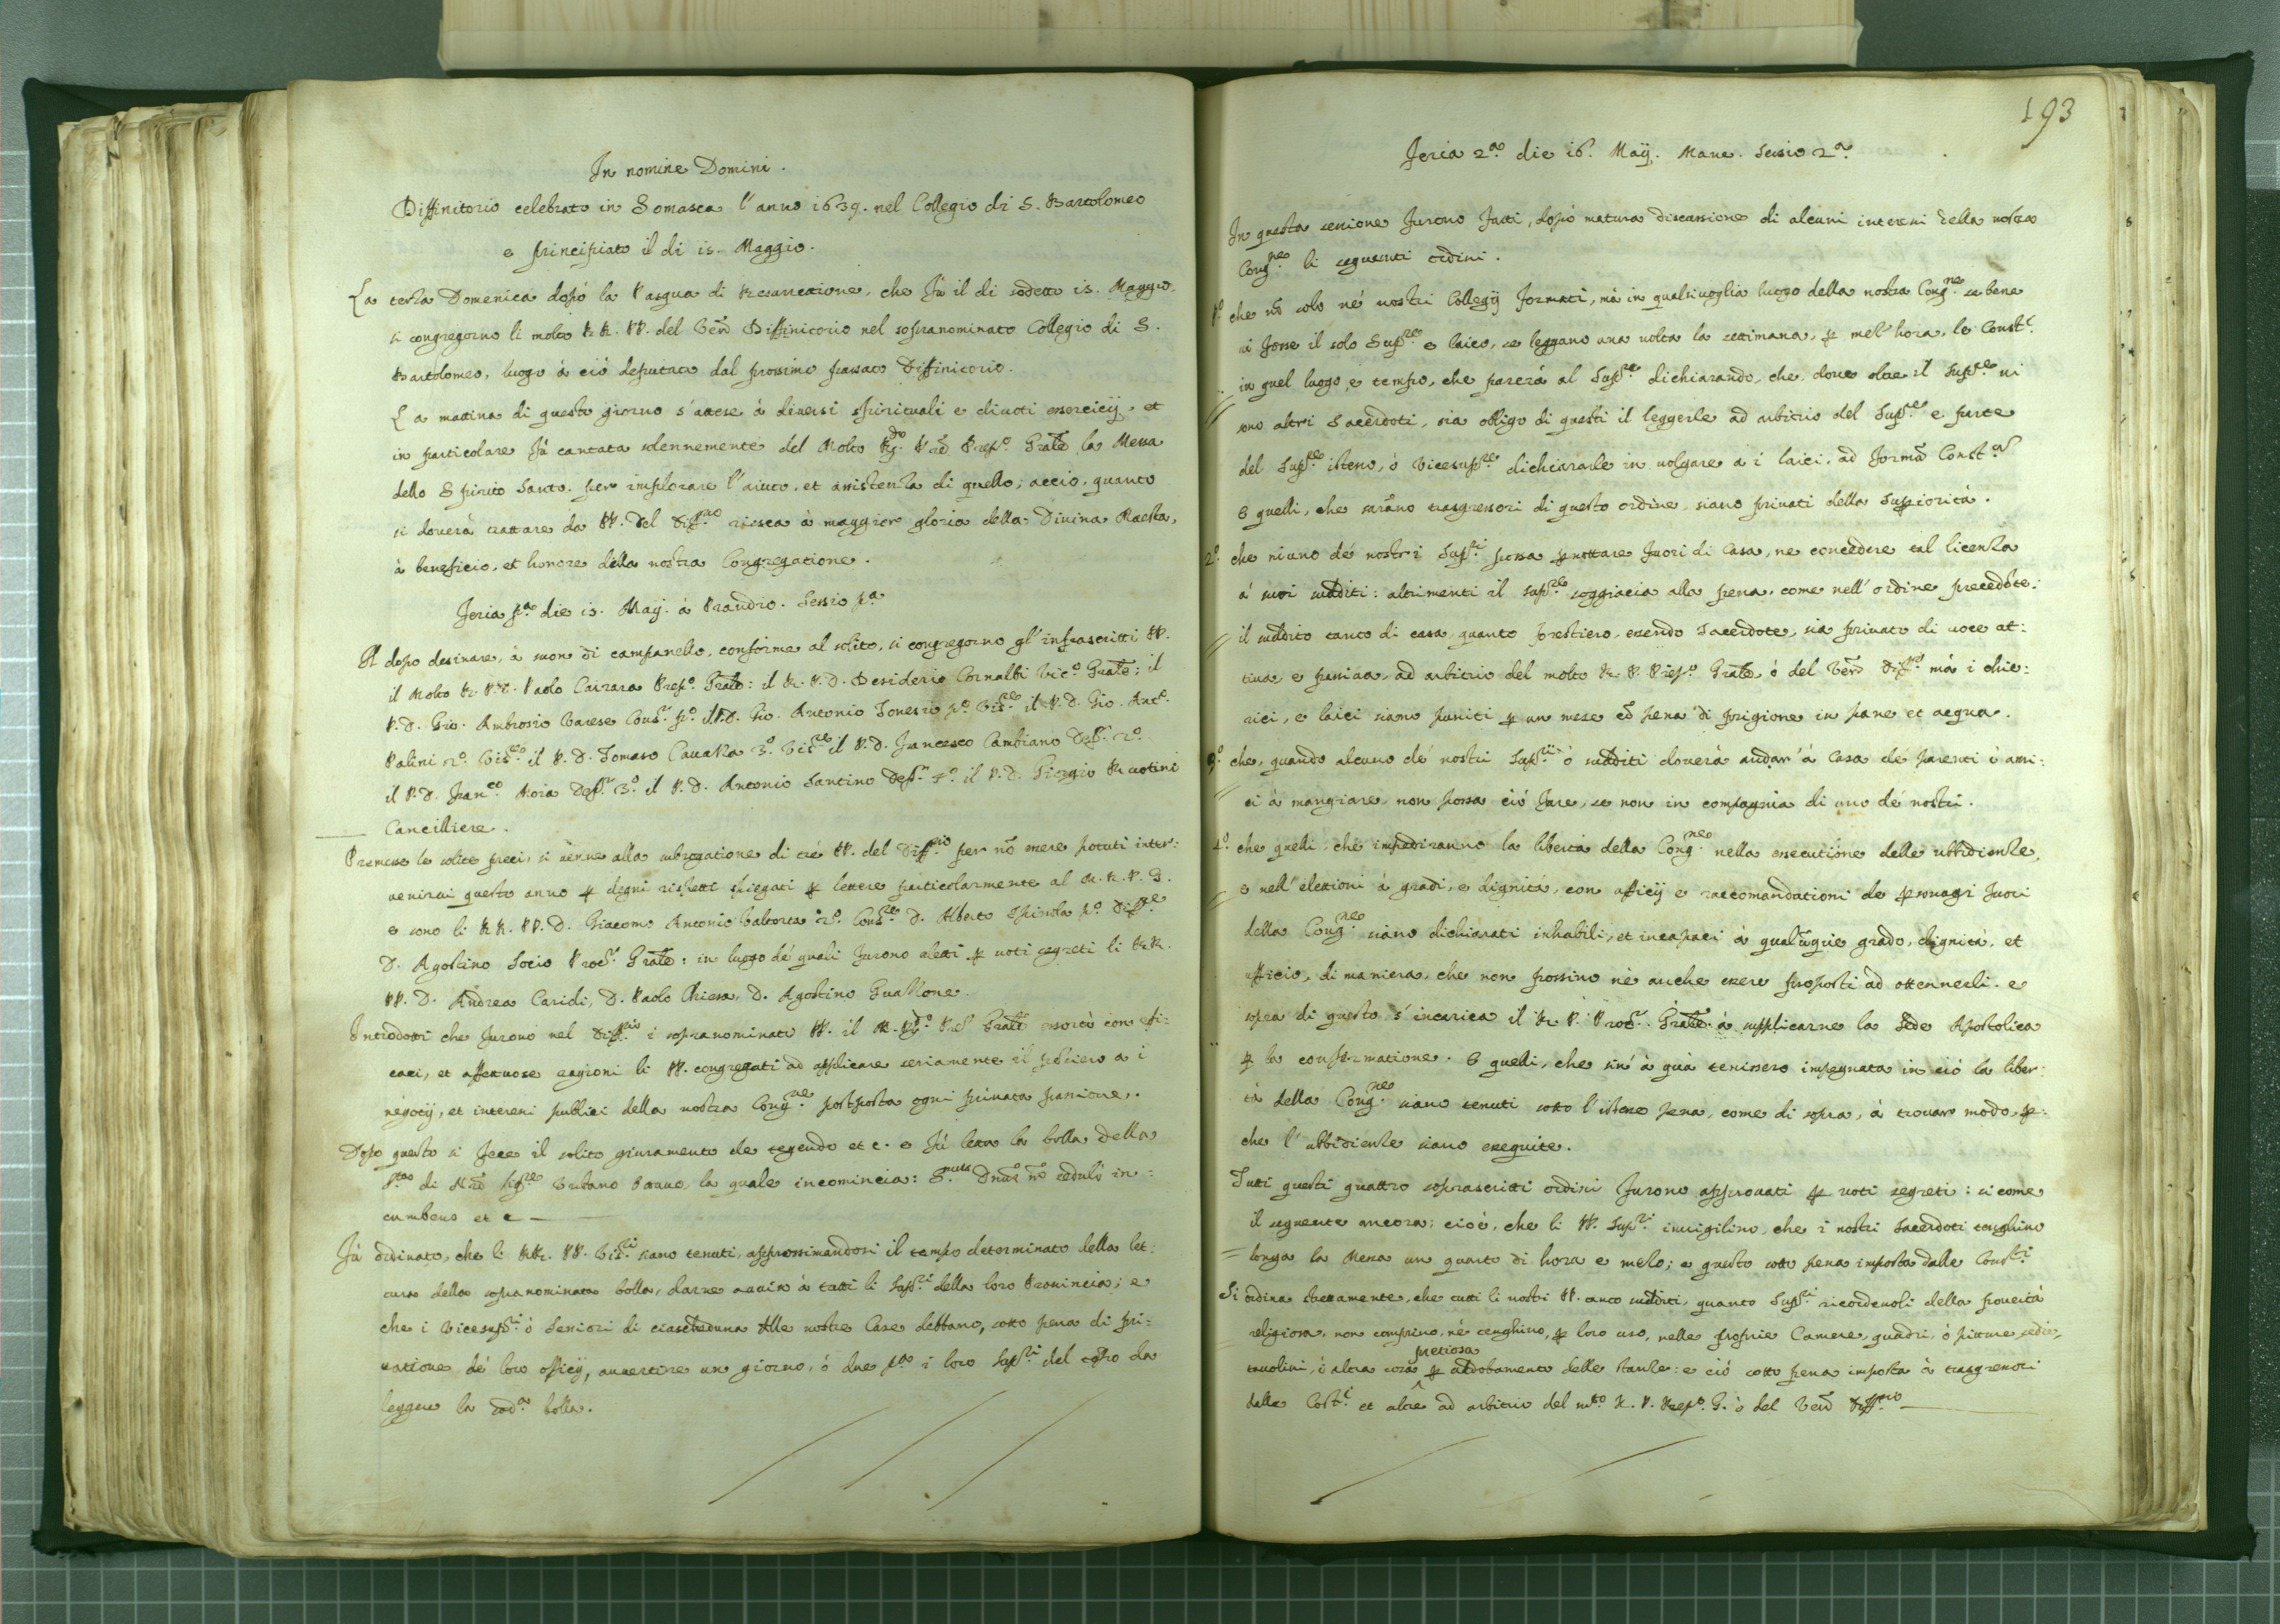 In nomine Domini.
Diffinitorio celebrato in Somasca l'anno 1639. nel Collegio di S. Bartolomeo
e principiato il di 15. Maggio.
La terza Domenica dopò la Pasqua di Resurrettione, che fù il di sodetto 15. Maggio,
si congregorno li molto RR. PP. del Ven. Diffinitorio nel sopranominato Collegio di S.
Bartolomeo, luogo à ciò deputato dal prossimo passato Diffinitorio.
La mattina di questo giorno s'attese à diversi spirituali e divoti essercicij, et
in particolare fù cantata solennemente del Molto Rdo. Prep.o Grale la Messa
dello Spirito Santo. per implorare l'aiuto, et assistenza di quello; acciò, quanto
si doverà trattare da PP. del Diff.rio riesca à maggior gloria della Divina Maesta,
à beneficio, et honore della nostra Congregatione.
Feria p.a die 15. Maij. à Prandio. Sessio p.a
Et dopo desinare, à suon di campanello, conforme al solito, si congregorno gl'infrascritti PP.
il Molto R. P. D. Paolo Carrara Prep.o Grale: il R. P. D. Desiderio Cornalbi Vic.o Grale; il
P. D. Gio. Ambrosio Varese Cons.r p.o il P. D. Gio. Antonio p.o Vis.re il P. D. Gio. Ant.o
Palini 2.o Vis.re il P. D. Tomaso Cavaza 3.o Vis.re il P. D. Francesco Cambiano Deff.r 2.o
il P. D. Fran.co Moia Deff.r 3.o il P. D. Antonio Santino Deff.r 4.o il P. D. Giorgio
Cancilliere.
Premesse le solite preci, si venne alla subrogatione di tré PP. del Diff.rio per nõ essere potuti inter:
venirvi questo anno p degni rispetti spiegati p lettere particolarmente al M. R. P. G.
e sono li RR. PP. D. Giacomo Antonio Valtorta 2.o Cons.re D. Alberto Spinola p.o Diff.re
D. Agostino Socio Proc.r Grale: in luogo dé quali furono aletti p voti segreti li RR.
PP. D. Andrea Caridi, D. Paolo Chiesa, D. Agostino Guazzone.
Introdotti che furono nel Diff.rio i sopranominati PP. il M. Rdo. P. Grale essortò con effi:
caci, et affettuose ragioni li PP. congregati ad applicare seriamente il pensiero a i
negotij, et interessi publici della nostra Cong.ne postposta ogni privata passione.
Dopo questo si fece il solito giuramento de tegendo et c. e fù letta la bolla della
di Urbano Ottavo, la quale incomincia: S.mus Dnus nr seduló in:
cumbens et c
Fù ordinato, che li RR. PP. Vis.ri siano tenuti, approssimandosi il tempo determinato della let:
tura della sopranominata bolla, darne aviso à tutti li Sup.ri della loro Provincia; e
che i Vicesup.ri ò Seniori di ciascheduna delle nostre Case debbano, sotto pena di pri:
vatione dé loro officij, avvertire un giorno, ó due p.a i loro Sup.ri del da
leggere la sod.a bolla.
193
Feria 2.a die 16. Maij. Mane. Sessio 2.a
In questa sessione furono fatti, dopò matura discussione di alcuni interessi della nostra
Cong.ne li seguenti ordini.
P.o che nõ solo ne' nostri Collegij formati, mà in qualsivoglia luogo della nostra Cong.ne se bene
vi fosse il solo Sup.re e laico, se leggano una volta la settimana, p mez'hora, le Const.i
in quel luogo, e tempo, che parerà al Sup.re dichiarando, che dove oltre il Sup.re vi
sono altri Sacerdoti, sia obligo di questi il leggerle ad arbitrio del Sup.re e parte
del Sup.re istesso, ò Vicesup.re dichiararle in volgare a i laici, ad formã Const.m
E quelli, che sarãno trasgressori di questo ordine, siano privati della Supiorità.
2.o che niuno dé nostri Sup.ri possa pnottare fuori di Casa, ne concedere tal licenza
à suoi sudditi: altrimenti il sup.re soggiacia alla pena, come nell'ordine precedẽte:
il suddito tanto di casa, quanto forestiero, essendo Sacerdote, sia privato di voce at:
tiva, e passiva, ad arbitrio del molto R. P. Prep.o Grale ò del Ven. Diff.rio mà i chie:
rici, e laici siano puniti p un mese cõ pena di prigione in pane et acqua.
3.o che, quando alcuno dé nostri Sup.ri ò sudditi doverà andar'à Casa dé parenti ò ami:
ci à mangiare, non possa ciò fare, se non in compagnia di uno dé nostri.
4.o che quelli, che impediranno la libertà della Cong.ne nella essecutione delle ubbidienze,
e nell'elettioni à gradi, e dignità, con officij e raccomandationi de psonagi fuori
della Cong.ne siano dichiarati inhabili, et incapaci à qualũque grado, dignità, et
ufficio, di maniera, che non possino nè anche essere proposti ad ottennerli. e
sopra di questo s'incarica il R. P. Proc.r Grale à supplicarne la Sede Apostolica
p la confirmatione. E quelli, che sin'à quà tenissero impegnata in ciò la liber:
tà della Cong.ne siano tenuti sotto l'istessa pena, come di sopra, à trovar modo, p
che l'ubbidienze siano eseguite.
Tutti questi quattro soprascritti ordini furono approvati p voti segreti: si come
il seguente ancora; cioè, che li PP. Sup.ri invigilino, che i nostri Sacerdoti tenghino
longa la Messa un quarto di hora e mezo; e questo sotto pena imposta dalle Const.i
Si ordina strettamente, che tutti li nostri PP. tanto sudditi, quanto Sup.ri ricordevoli della povertà
religiosa, non comprino, nè tenghino, p loro uso, nelle proprie Camere, quadri, ò pitture, sedie,
tavolini, ò altra cosa pretiosa p addobamento delle stanze: e ciò sotto pena imposta à trasgressori
dalle Cost.i et altre ad arbitrio del m.to R. P. Prep.o G. ò del Ven. Diff.rio